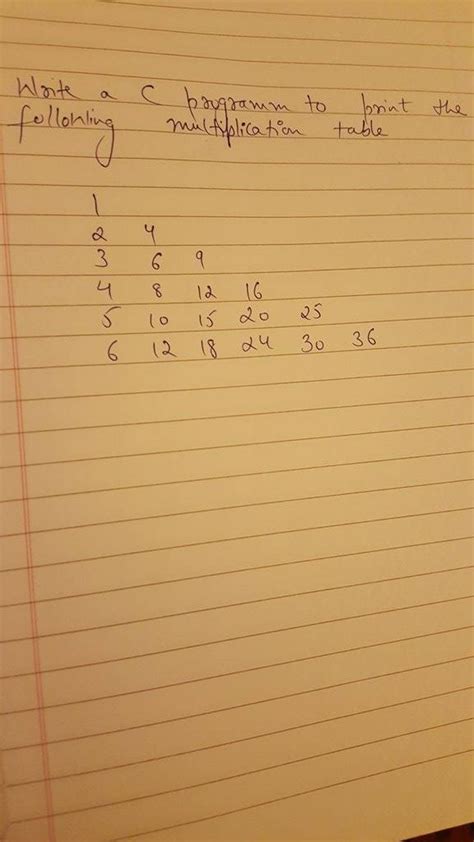 Write a C programm to print the
following multiplication table
1
2 4
3 6 9
4 8 12 16
5 10 15 20 25
6 12 18 24 30 36